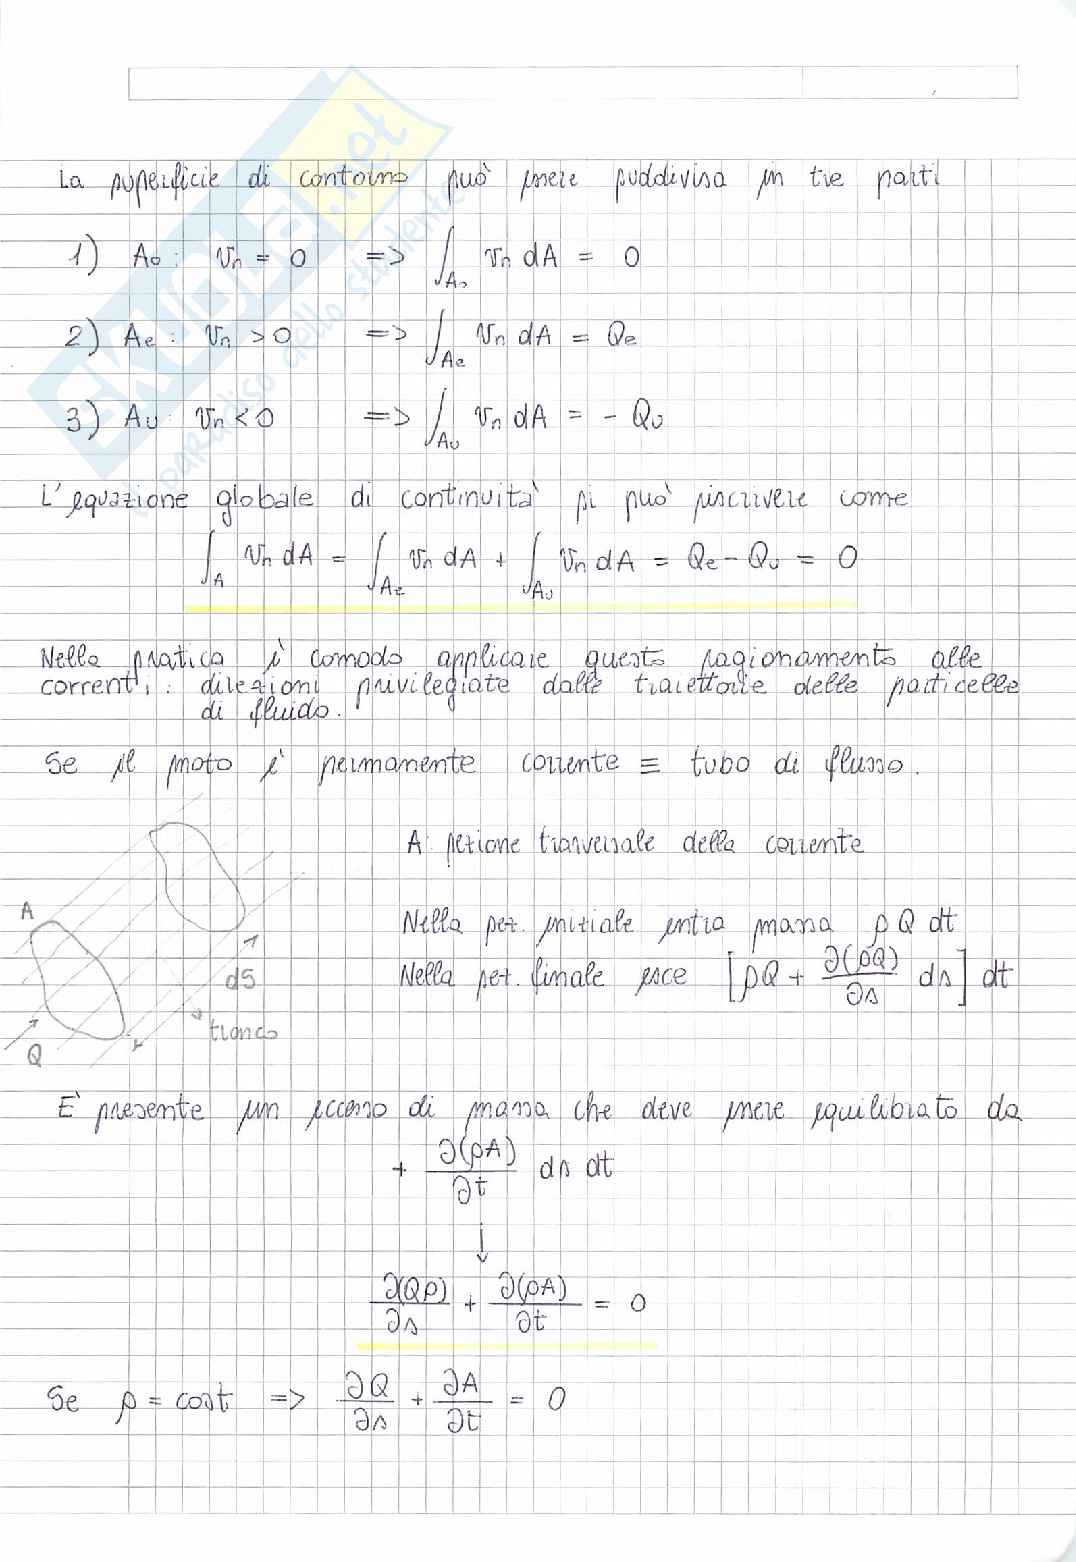 La superficie di contorno può essere suddivisa in tre parti
1) A₀ : vₙ = 0 => ∫_A₀ vₙ dA = 0
2) Ae : vₙ > 0 => ∫_Ae vₙ dA = Qe
3) Au : vₙ < 0 => ∫_Au vₙ dA = - Qu
L'equazione globale di continuità si può riscrivere come
∫_A vₙ dA = ∫_Ae vₙ dA + ∫_Au vₙ dA = Qe - Qu = 0
Nella pratica è comodo applicare questo ragionamento alle
correnti : direzioni privilegiate dalle traiettorie delle particelle
di fluido.
Se il moto è permanente corrente ≡ tubo di flusso.
A: sezione trasversale della corrente
Nella sez. iniziale entra massa ρ Q dt
Nella sez. finale esce [ρQ + ∂(ρQ)/∂s ds] dt
A
dS
tronco
Q
E' presente un eccesso di massa che deve essere equilibrato da
+ ∂(ρA)/∂t ds dt
↓
∂(Qρ)/∂s + ∂(ρA)/∂t = 0
Se ρ = cost => ∂Q/∂s + ∂A/∂t = 0
SKUOLA.net
il paradiso dello studente